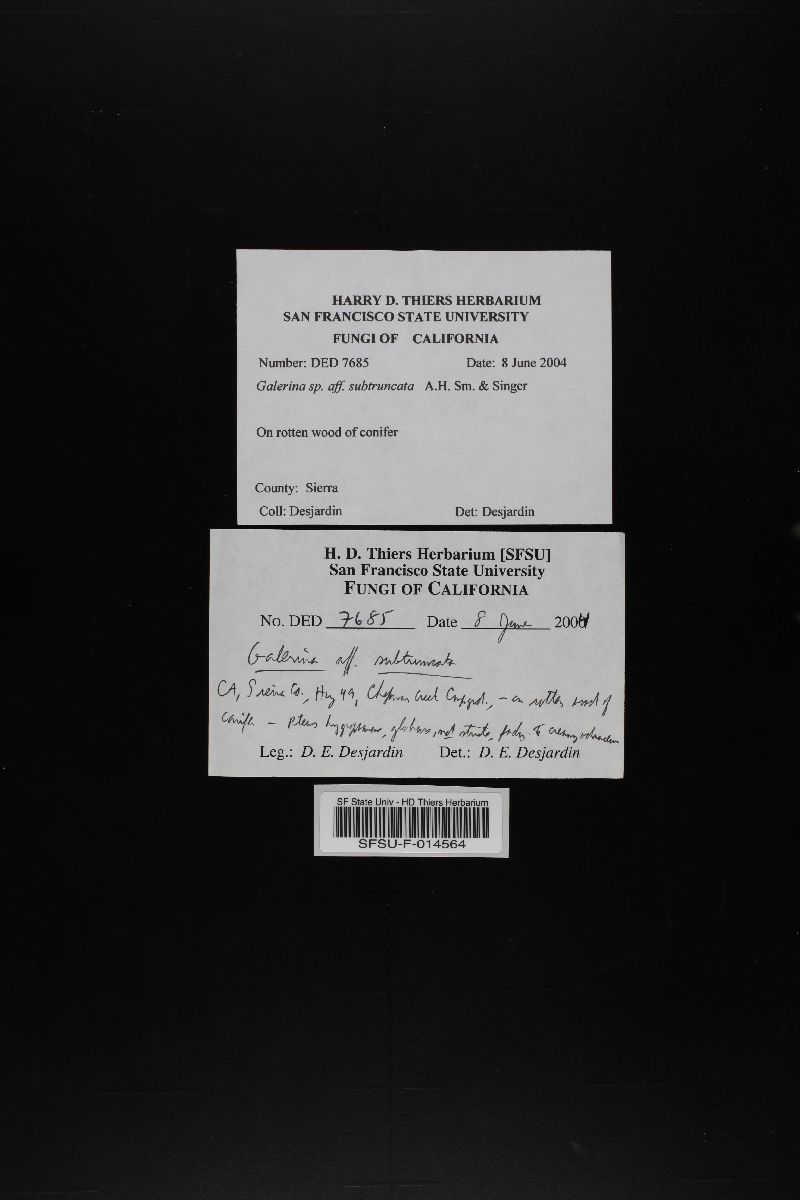 HARRY D. THIERS HERBARIUM
SAN FRANCISCO STATE UNIVERSITY
FUNGI OF CALIFORNIA
Number: DED 7685 Date: 8 June 2004
Galerina sp. aff. subtruncata A.H. Sm. & Singer
On rotten wood of conifer
County: Sierra
Coll: Desjardin Det: Desjardin
H. D. Thiers Herbarium [SFSU]
San Francisco State University
FUNGI OF CALIFORNIA
No. DED 7685 Date 8 June 2004
Galerina aff. subtruncata
CA, Sierra Co., Hwy 49, Chapman Creek Campgd., - on rotten wood of
conifer - pileus hygrophanous, glabrous, not striate, fading to creamy ochraceous
Leg.: D. E. Desjardin Det.: D. E. Desjardin
SF State Univ - HD Thiers Herbarium
SFSU-F-014564